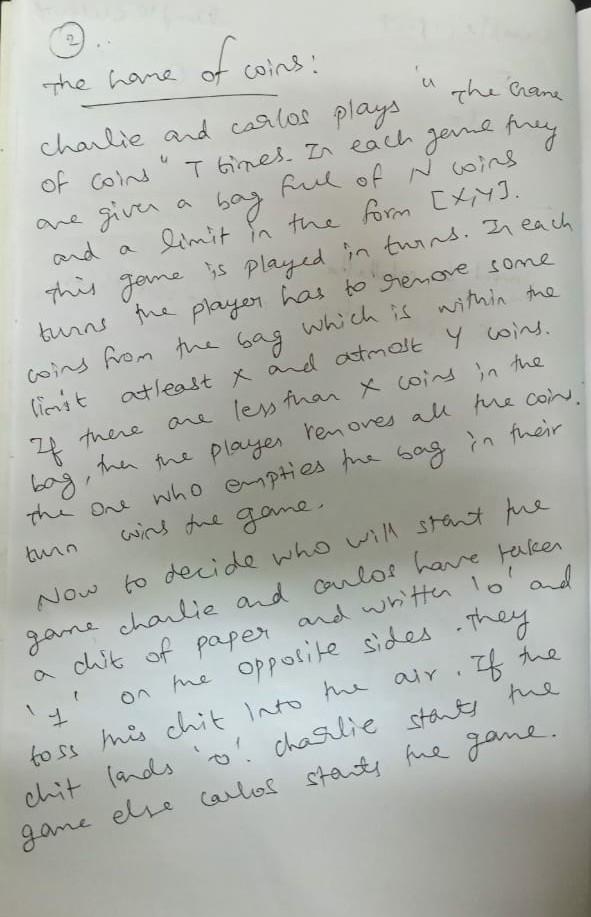 2 ..
The Game of coins:
charlie and carlos plays "The Game
of coins" T times. In each game they
are given a bag full of N coins
and a limit in the form [X,Y].
this game is played in turns. In each
turns the player has to remove some
coins from the bag which is within the
limit atleast X and atmost Y coins.
If there are less than X coins in the
bag, then the player removes all the coins.
the one who empties the bag in their
turn wins the game.
Now to decide who will start the
game charlie and carlos have taken
a chit of paper and written '0' and
'1' on the opposite sides. they
toss this chit into the air. If the
chit lands '0'. charlie starts the
game else carlos starts the game.